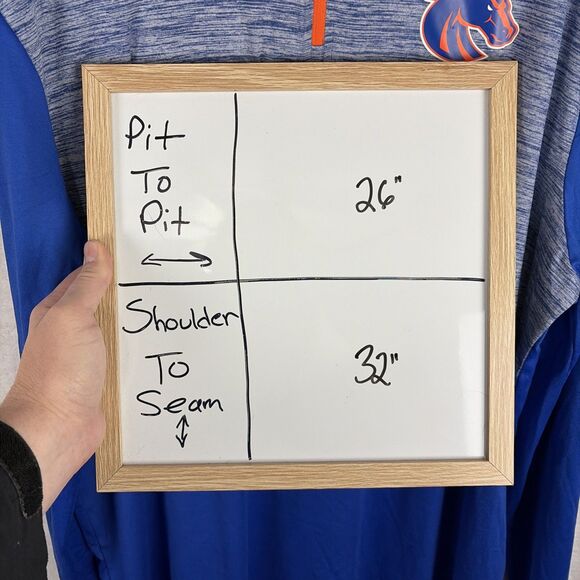 Pit
To
Pit
26"
Shoulder
To
Seam
32"